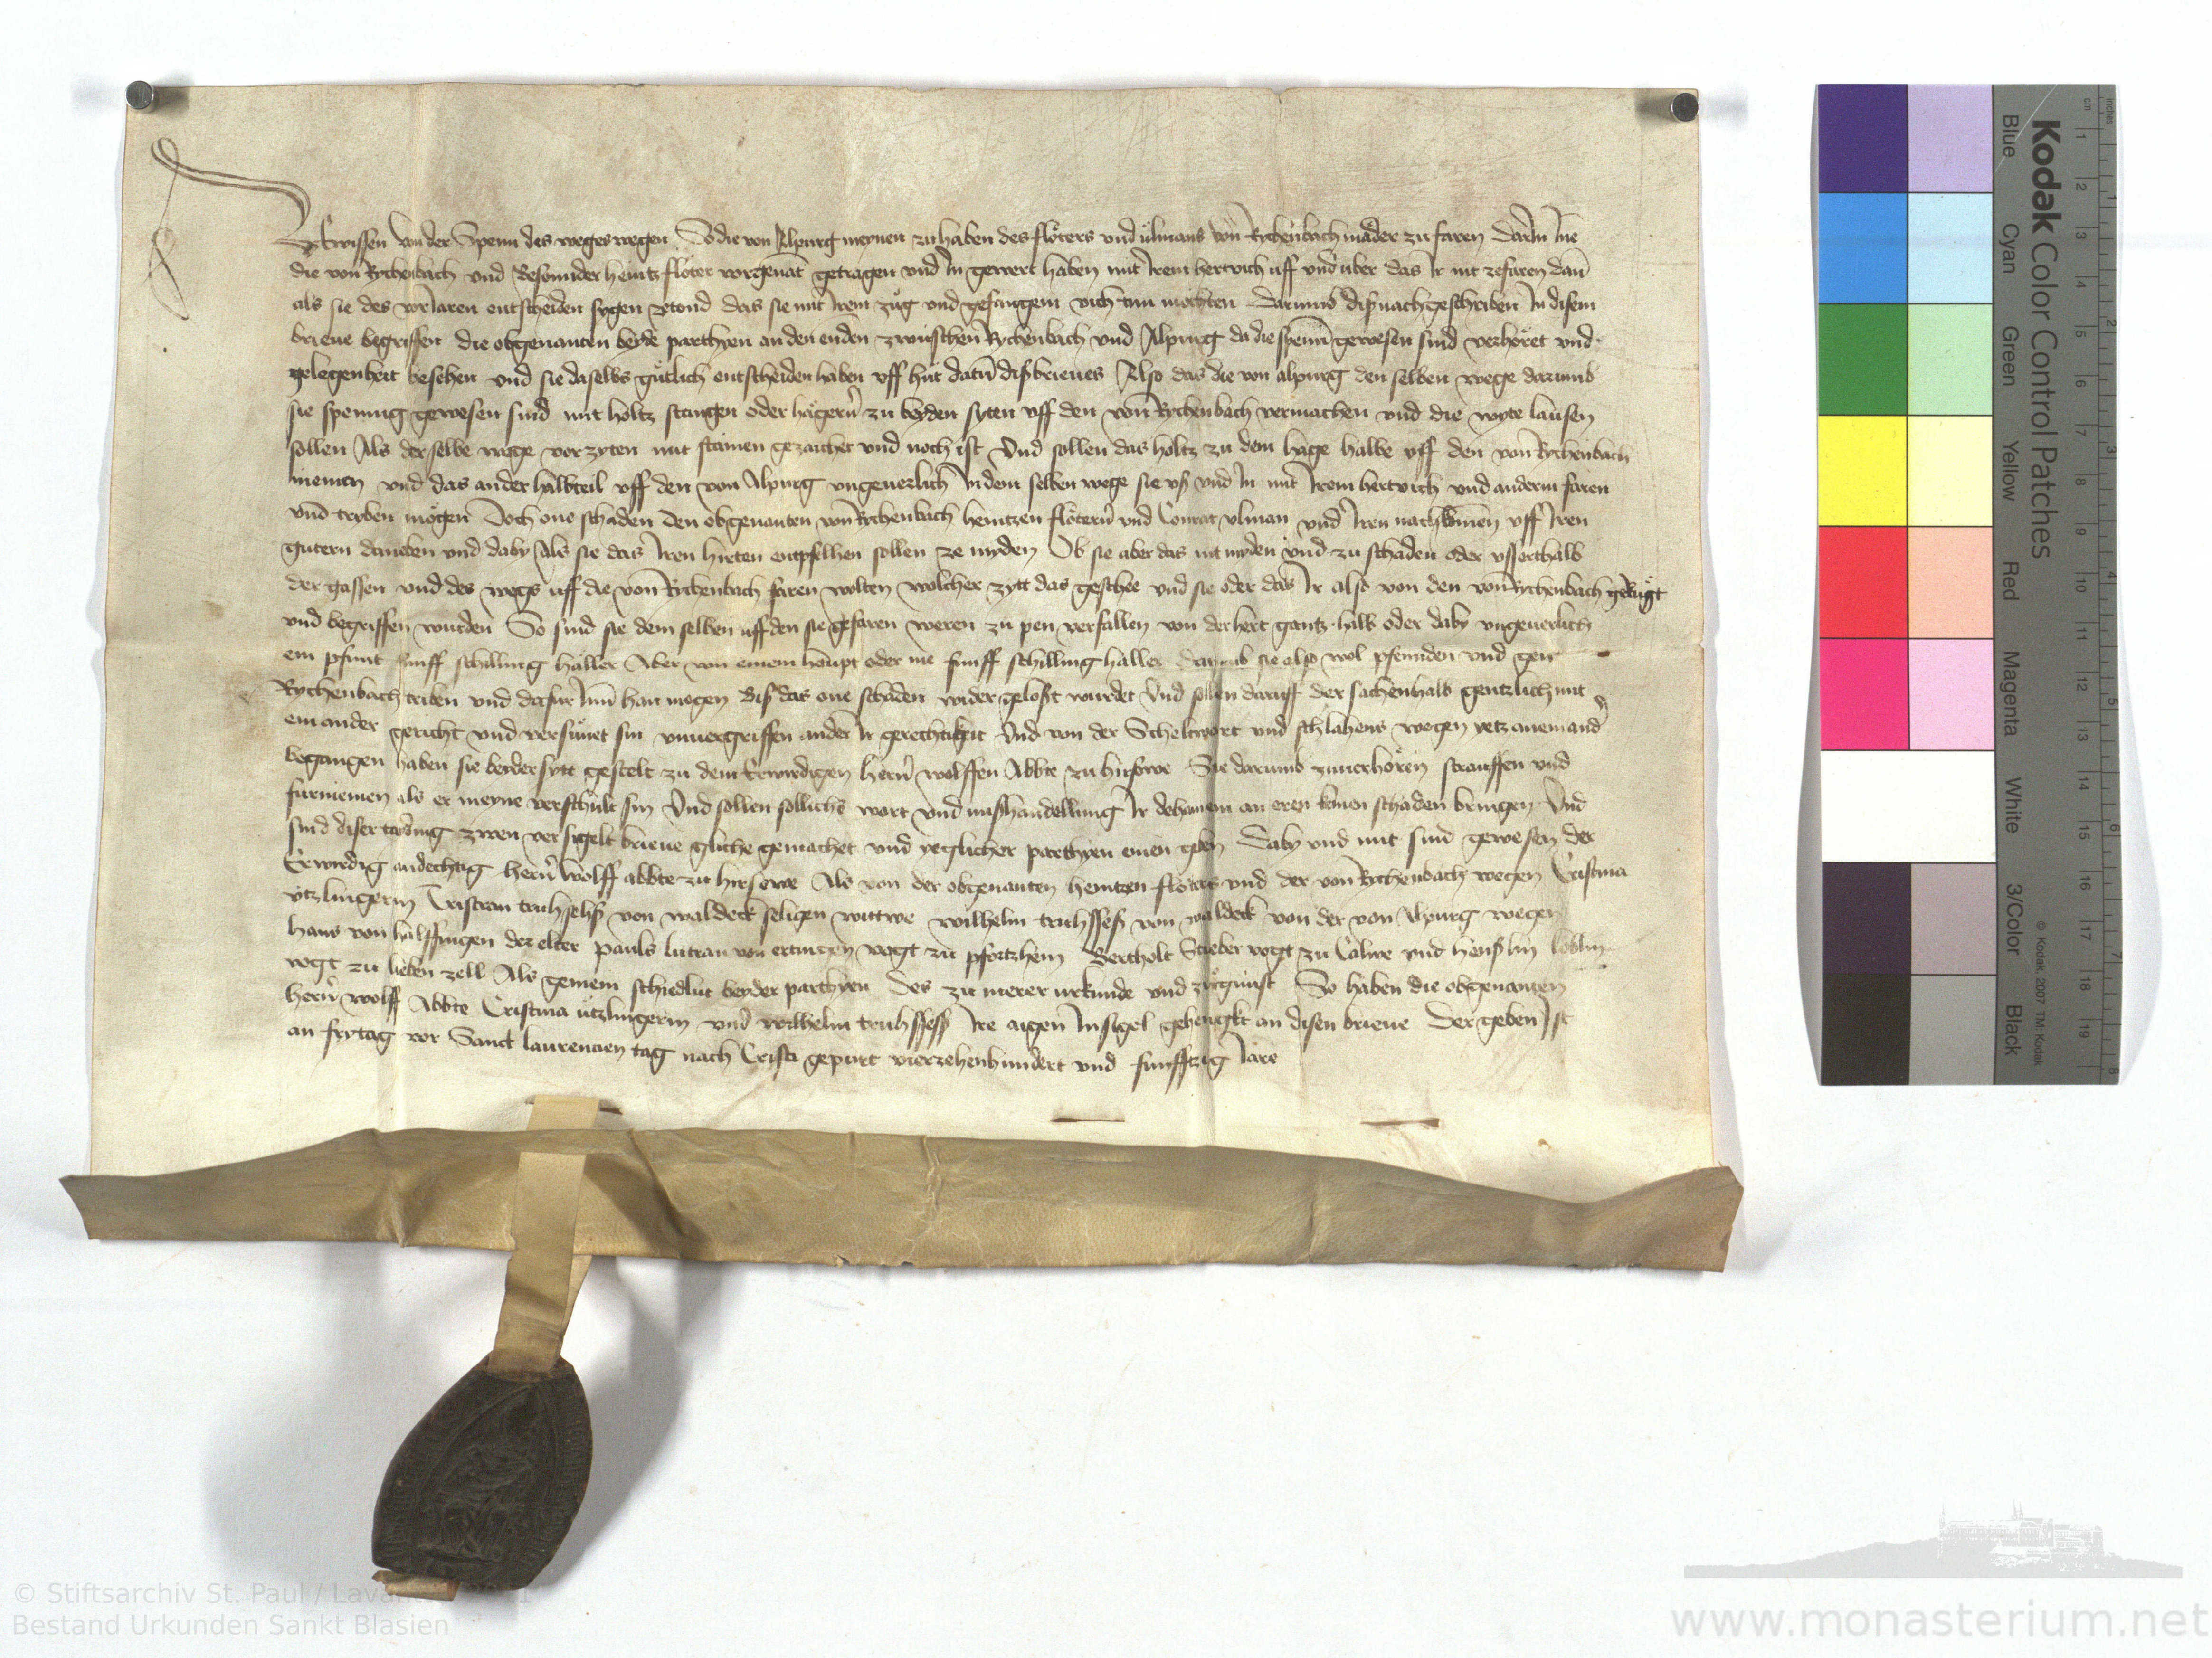 Zewissen Von der Spenn des weges wegen So die von Alpurg meynen zu haben des flöters vnd ülmans von Rychenbach mäder zu faren Darin Ine
die von Rychenbach vnd Besonnder heintz flöter vorgenāt getragen vnd In gewert haben mit Irem hertvich uff vnd über das Ir nit zefaren dañ
als sie des vor Iaren entscheiden sygen das sie mit Irem züg vnd gefangem vich tun möchten Darumb diß nachgeschriben In disem
brieue begriffen die obgenanten beyde parthyen an den enden zwüschen Rychenbach vnd Alpurg da die spenn gewesen sind verhöret vnd
gelegenheit besehen vnd sie daselbs gütlich entscheiden haben vff hüt datū diß brieues Also das die von alpurg den selben wege darumb
sie spennig gewesen sind mit holtz stangen oder hägern zu beyden syten vff den von Rychenbach vermachen vnd die wyte laussen
sollen Als der selbe wege vor zyten mit stainen gezaichet vnd noch ist Vnd sollen das holtz zu dem hage halbe vff den von Rychenbach
niemen vnd das ander halbteil vff den von Alpurg vngeuerlich In dem selben wege sie vß vnd In mit Irem hertvich vnd anderm faren
vnd tryben mögen Doch one schaden den obgenanten von Rychenbach heintzen flötern vnd Conrat vlman vnd Iren nachkomen vff Iren
gutern daneben vnd daby Als sie das Iren hirten entpfelhen sollen ze myden Ob sie aber das nit myden vnd zu schaden oder vsserthalb
der gassen vnd des wegs uff die von Rychenbach faren wolten wölcher zytt das geschee vnd sie oder das Ir also von den von Rychenbach gerügt
vnd begriffen würden So sind sie dem selben uff den sie gefaren weren zu pen verfallen von der hert gantz halb oder daby vngeuerlich
ein pfunt fünff schilling haller Aber von einem haupt oder me fünff schilling haller Darumb sie also wol pfennden vnd gen
Rychenbach triben vnd dafür Inn han mogen Biß das one schaden wider gelöst wurdet Vnd sollen daruff der sachenhalb gentzlich mit
ein ander gericht vnd versünet sin vnuergriffen ander Ir gerechtikeit Vnd von der Scheltwort vnd schlahens wegen yetz an einander
begangen haben sie beydersytt gestelt zu dem Erwirdigen hern wolffen Abbte zu hirßowe Sie darumb zuuerhören strauffen vnd
fürniemen als er meyne verschult sin Vnd sollen sollichs wort vnd mißhandellung Ir dehainem an eren keinen schaden bringen Vnd
sind diser tading zwen versigelt brieue gliche gemachet vnd yeglicher parthyen einen geben Daby vnd mit sind gewesen der
Erwirdig andechtig hern Wolff abbte zu hirsowe Als von der obgenanten heintzen flöters vnd der von Rychenbach wegen Cristina
vtzlingerin Tristran truchsehß von waldeck seligen wittwe wilhelm truchsseß von waldeck von der von Alpurg wegen
hans von halffingen der elter pauls lutran von ertingen vogt zu pfortzhein Bertholt Stieber vogt zu Calwe vnd henßlin löblin
vogt zu lieben zell Als gemein schiedlüt beyder parthyen Des zu merer urkunde vnd zügnüst So haben die obgenanten
hern wolff Abbte Cristina ützlingerin vnd wilhelm truchsseß Ire aigen Insigel gehengkt an disen brieue Der geben Ist
an frytag vor Sanct laurencien tag nach Cristi gepürt vierzehenhundert vnd funfftzig Iare
Kodak Color Control Patches
Blue Cyan Green Yellow Red Magenta White 3/Color Black
© Kodak, 2007 TM: Kodak
cm 1 2 3 4 5 6 7 8 9 10 11 12 13 14 15 16 17 18 19
inches 1 2 3 4 5 6 7 8
© Stiftsarchiv St. Paul / Lavanttal 2011
Bestand Urkunden Sankt Blasien
www.monasterium.net